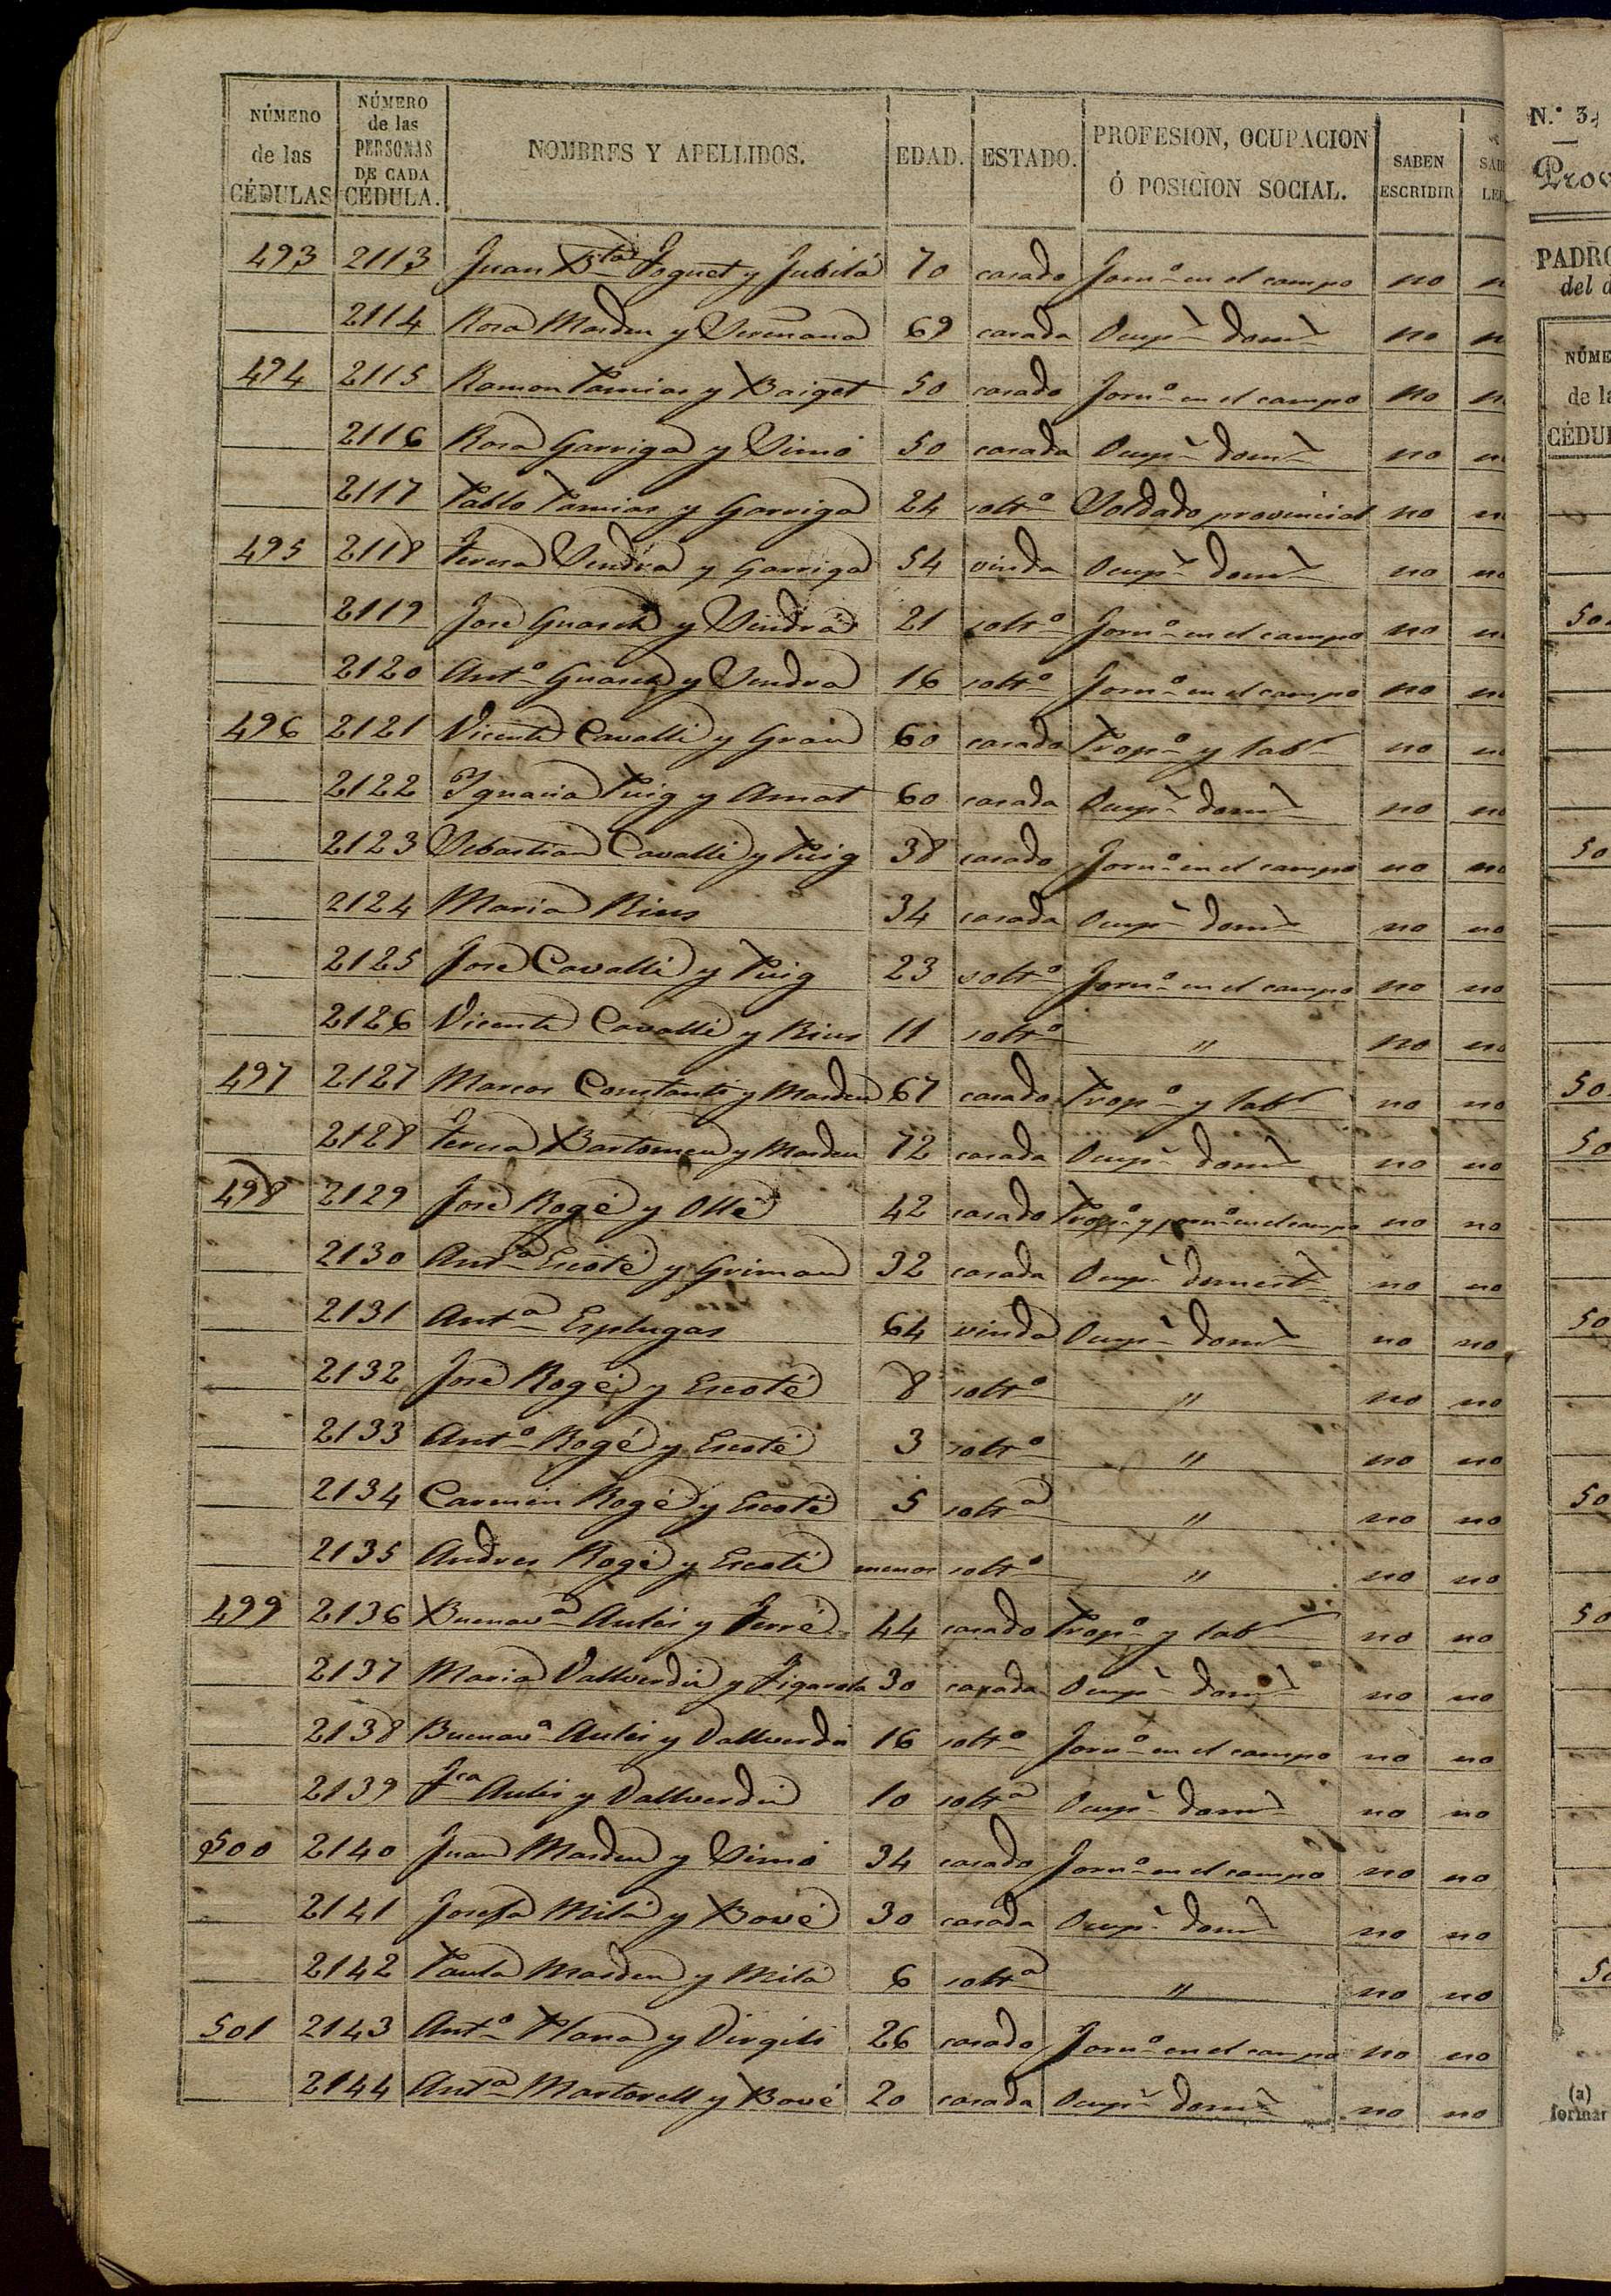 NÚMERO de las CÉDULAS NÚMERO de las PERSONAS DE CADA CÉDULA. NOMBRES Y APELLIDOS. EDAD. ESTADO. PROFESION, OCUPACION Ó POSICION SOCIAL. SABEN ESCRIBIR
493 2113 Juan Bta Foguet y Jubilá 70 casado Jorno en el campo no
2114 Rosa Masdeu y 69 casada Ocupn domt no
494 2115 Ramon Pamias y Baiget 50 casado Jorno en el campo no
2116 Rosa Garriga y Simó 50 casada Ocupn domt no
2117 Pablo Pamias y Garriga 24 soltro Soldado provincial no
495 2118 Teresa Sendra y Garriga 54 viuda Ocupn domt no no
2119 José Guasch y Sendra 21 soltro Jorno en el campo no no
2120 Anto Guasch y Sendra 16 soltro Jorno en el campo no no
496 2121 Vicente Cavallé y Grau 60 casado Propo y labr no no
2122 Ignacia Puig y Amat 60 casada Ocupn domt no no
2123 Sebastian Cavallé y Puig 38 casado Jorno en el campo no no
2124 Maria Rius 34 casada Ocupn domt no no
2125 José Cavallé y Puig 23 soltro Jorno en el campo no no
2126 Vicente Cavallé y Rius 11 soltro " no no
497 2127 Marcos Constanti y Masdeu 67 casado Propo y labr no no
2128 Teresa Bartomeu y Masdeu 72 casada Ocupn domt no no
498 2129 José Rogé y Ollé 42 casado Propo y jorno en el campo no no
2130 Anta Escoté y Grimau 32 casada Ocupn domest no no
2131 Anta Esplugas 64 viuda Ocupn domt no no
2132 José Rogé y Escoté 8 soltro " no no
2133 Anto Rogé y Escoté 3 soltro " no no
2134 Carmen Rogé y Escoté 5 soltra " no no
2135 Andres Rogé y Escoté menor soltro " no no
499 2136 Buenava Aulés y Ferré 44 casado Propo y labr no no
2137 Maria Vallverdú y Figarola 30 casada Ocupn domt no no
2138 Buenava Aulés y Vallverdú 16 soltro Jorno en el campo no no
2139 Fca Aulés y Vallverdú 10 soltra Ocupn domt no no
500 2140 Juan Masdeu y Simó 34 casado Jorno en el campo no no
2141 Josefa Milá y Bové 30 casada Ocupn domt no no
2142 Paula Masdeu y Milá 6 soltra " no no
501 2143 Anto Plana y Virgili 26 casado Jorno en el campo no no
2144 Anta Martorell y Bové 20 casada Ocupn domt no no
N.º 3.
PADRO
del
NÚME
de la
CÉDUL
(a)
formar